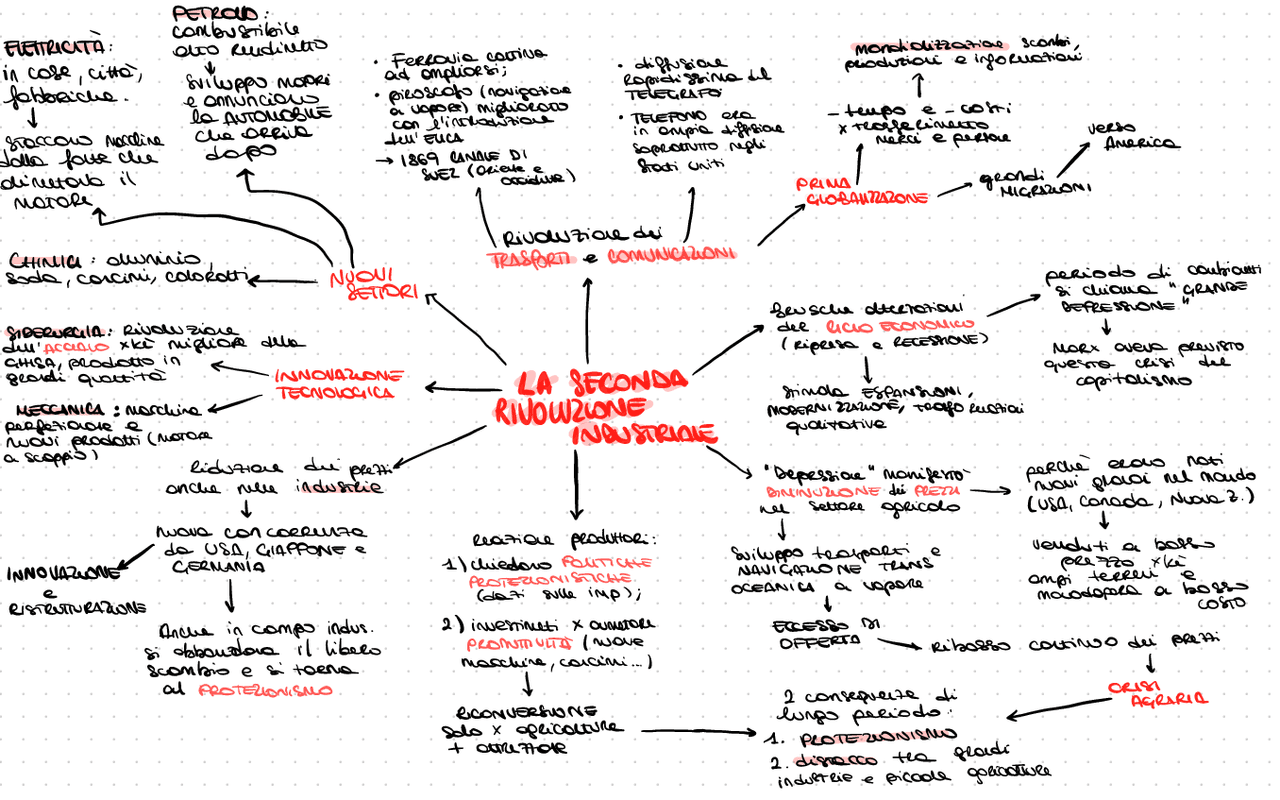 PETROLIO:
combustibile
alto rendimento
sviluppo motori
e annunciano
la AUTOMOBILE
che arriva
dopo
ELETTRICITÀ:
in case, città,
fabbriche.
staccano macchine
dalla fonte che
alimentava il
MOTORE
CHIMICA: alluminio,
soda, concimi, coloranti
NUOVI
SETTORI
• Ferrovia continua
ad ampliarsi;
• piroscafo (navigazione
a vapore) migliorato
con l'introduzione
dell'ELICA
→ 1869 CANALE DI
SUEZ (Oriente e
occidente)
• diffusione
rapidissima del
TELEGRAFO
• TELEFONO era
in ampia diffusione
soprattutto negli
Stati Uniti
Rivoluzione dei
TRASPORTI e COMUNICAZIONI
mondializzazione scambi,
produzioni e informazioni
- tempo e - costi
x trasferimento
merci e persone
PRIMA
GLOBALIZZAZIONE
grandi
MIGRAZIONI
verso
America
LA SECONDA
RIVOLUZIONE
INDUSTRIALE
SIDERURGIA: Rivoluzione
dell'ACCIAIO xkè migliore della
GHISA, prodotto in
grandi quantità
MECCANICA: macchine
perfezionate e
nuovi prodotti (motore
a scoppio)
INNOVAZIONE
TECNOLOGICA
Brusche alterazioni
del CICLO ECONOMICO
(ripresa e RECESSIONE)
stimola ESPANSIONI,
MODERNIZZAZIONE, trasformazioni
qualitative
periodo di cambiamenti
si chiama "GRANDE
DEPRESSIONE"
MARX aveva previsto
questa crisi del
capitalismo
Riduzione dei prezzi
anche nelle industrie
Nuova concorrenza
da USA, GIAPPONE e
GERMANIA
INNOVAZIONE
e
RISTRUTTURAZIONE
Anche in campo indus.
si abbandona il libero
scambio e si torna
al PROTEZIONISMO
Reazione produttori:
1) chiedono POLITICHE
PROTEZIONISTICHE
(dazi sulle imp);
2) investimenti x aumentare
PRODUTTIVITÀ (nuove
macchine, concimi...)
RICONVERSIONE
solo x agricolture
+ attrezzate
"Depressione" manifestò
DIMINUZIONE dei PREZZI
nel settore agricolo
perchè erano nati
nuovi granai nel mondo
(USA, Canada, Nuova Z.)
venduti a basso
prezzo xkè
ampi terreni e
manodopera a basso
costo
Sviluppo trasporti e
NAVIGAZIONE TRANS
OCEANICA a vapore
ECCESSO DI
OFFERTA
Ribasso continuo dei prezzi
CRISI
AGRARIA
2 conseguenze di
lungo periodo:
1. PROTEZIONISMO
2. distacco tra grandi
industrie e piccole agricolture